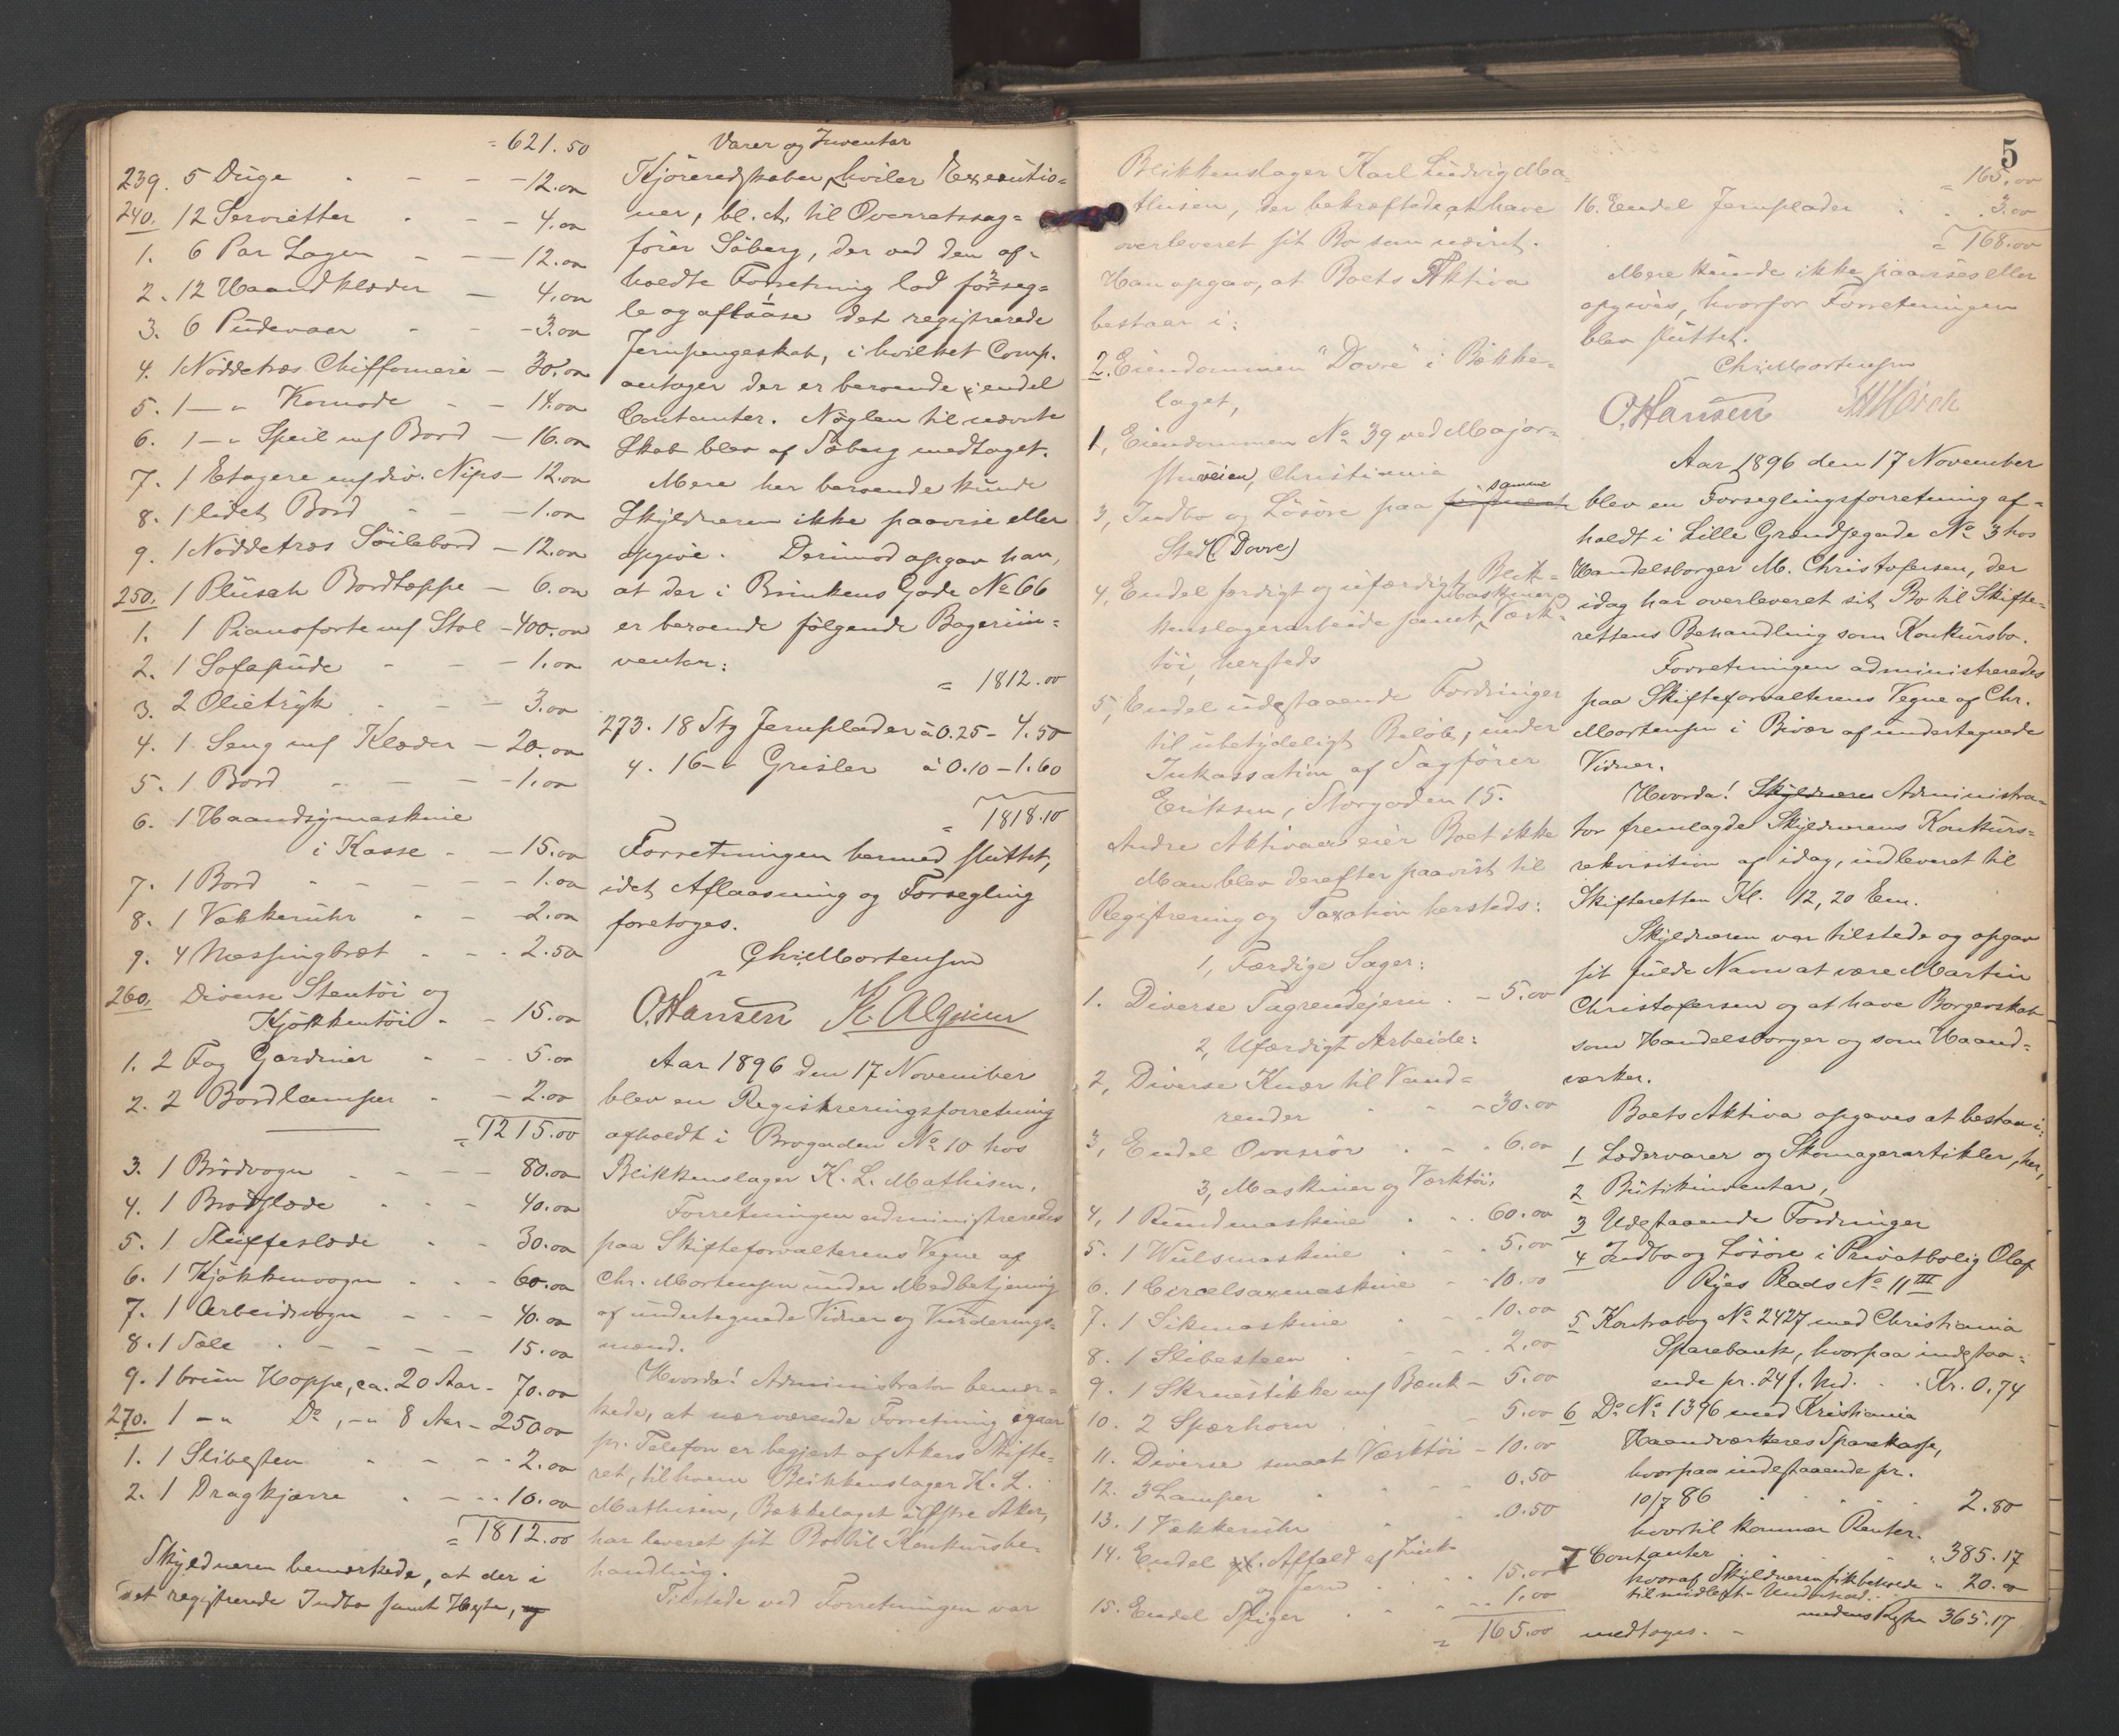 = 621.50
239. 5 Duge - - - 12.00
240. 12 Servietter - - - 4.00
1. 6 Par Lagen - - - 12.00
2. 12 Haandklæder - 4.00
3. 6 Pudevaar - - - 3.00
4. 1 Nöddetræs Chiffoniere - 30.00
5. 1 — " Komode - - 14.00
6. 1 — " Speil m/ Bord - 16.00
7. 1 Etagere m/ div. Nips - 12.00
8. 1 lidet Bord - - - 1.00
9. 1 Nöddetræs Söilebord - 12.00
250. 1 Plüsch Bordtæppe - 6.00
1. 1 Pianoforte m/ Stol - 400.00
2. 1 Sofapude - - - 1.00
3. 2 Olietryk - - - 3.00
4. 1 Seng m/ Klæder - 20.00
5. 1 Bord - - - - 1.00
6. 1 Haandsymaskine
i Kasse - - 15.00
7. 1 Bord - - - - 1.00
8. 1 Vækkeruhr - - 2.00
9. 4 Messingbræt - - - 2.50
260. Diverse Stentöi og
Kjökkentöi - - 15.00
1. 2 Fag Gardiner - - - 5.00
2. 2 Bordlamper - - 2.00
= 1215.00
3. 1 Brödvogn - - - - 80.00
4. 1 Brödslæde - - - 40.00
5. 1 Sluffeslæde - - 30.00
6. 1 Kjökkenvogn - - - 60.00
7. 1 Arbeidsvogn - - - 40.00
8. 1 Sele - - - - - 15.00
9. 1 brun Hoppe, ca. 20 Aar - 70.00
270. 1 - " Do, - " 8 Aar - 250.00
1. 1 Slibesten - - - - 2.00
2. 1 Dragkjærre - - - 10.00
= 1812.00
Skyldneren bemærkede, at der i
det registrerede Indbo samt Heste, og
Varer og Inventar
Kjöreredskaber, hviler Executio-
ner, bl. A. til Overretssag-
förer Söberg, der ved den af-
holdte Forretning lod forseg-
le og aflaase det registrerede
Jernpengeskab, i hvilket Comp.
antager der er beroende endel
Contanter. Nöglen til nævnte
Skab blev af Söberg medtaget.
Mere her beroende kunde
Skyldneren ikke paavise eller
opgive. Derimod opgav han,
at der i Brinkens Gade No 66
er beroende fölgende Bageriin-
ventar:
= 1812.00
273. 18 Stg Jernplader à 0.25 - 4.50
4. 16 - " Grisler à 0.10 - 1.60
= 1818.10
Forretningen hermed sluttet,
idet Aflaasning og Forsegling
foretoges.
Chr. Mortensen
O. Hansen K. Algurn
Aar 1896 den 17 November
blev en Registreringsforretning
afholdt i Brogaden No 10 hos
Blikkenslager K. L. Mathisen.
Forretningen administreredes
paa Skifteforvalterens Vegne af
Chr. Mortensen under Medbetjening
af undertegnede Vidner og Vurderings-
mænd.
Hvorda! Administrator bemær-
kede, at nærværende Forretning igaar
pr. Telefon er begjert af Akers Skifte-
ret, til hvem Blikkenslager K. L.
Mathisen, Bækkelaget i Östre Aker,
har leveret sit Bo til Konkursbe-
handling.
Tilstede ved Forretningen var
5
Blikkenslager Karl Ludvig Ma-
thisen, der bekræftede at have
overleveret sit Bo som nævnt.
Han opgav, at Boets Aktiva
bestaar i:
2. Eiendommen "Dovre" i Bække-
laget,
1, Eiendommen No 39 ved Major-
stuveien, Christiania
3, Indbo og Lösöre paa samme
Sted (Dovre)
4, Endel færdigt og ufærdigt Blik-
kenslagerarbeide samt Maskiner og Værk-
töi, hersteds
5, Endel udestaaende Fordringer
til ubetydeligt Belöb, under
Inkassation af Sagförer
Eriksen, Storgaden 15.
Andre Aktiva eier Boet ikke
Man blev derefter paavist til
Registrering og Taxation hersteds:
1, Færdige Sager:
1. Diverse Tagrendejern - - 5.00
2, Ufærdigt Arbeide:
2, Diverse Knær til Vand-
render - - - 30.00
3, Endel Ovnsrör - - - 6.00
3, Maskiner og Værktöi:
4, 1 Rundmaskine - - - 60.00
5. 1 Wulsmaskine - - - 5.00
6. 1 Circelsaxmaskine - - 10.00
7. 1 Sikmaskine - - - 10.00
8. 1 Slibesteen - - - 2.00
9. 1 Skruestikke m/ Bænk - 5.00
10. 2 Spærhorn - - - 5.00
11. Diverse smaat Værktöi - 10.00
12. 3 Lamper - - - 0.50
13. 1 Vækkeruhr - - - 0.50
14. Endel gl. Affald af Zink
og Jern - - - 15.00
15. Endel Spiger - - - 1.00
= 165.00
= 165.00
16. Endel Jernplader - - - 3.00
= 168.00
Mere kunde ikke paavises eller
opgives, hvorfor Forretningen
blev sluttet.
Chr. Mortensen
O. Hansen
Aar 1896 den 17 November
blev en Forseglingsforretning af-
holdt i Lille Grændsegade No 3 hos
Handelsborger M. Christofersen, der
idag har overleveret sit Bo til Skifte-
rettens Behandling som Konkursbo.
Forretningen administreredes
paa Skifteforvalterens Vegne af Chr.
Mortensen i Bivær af undertegnede
Vidner.
Hvorda! Skyldneren Administra-
tor fremlagde Skyldnerens Konkurs-
rekvisition af idag, indleveret til
Skifteretten Kl. 12,20 Em.
Skyldneren var tilstede og opgav
sit fulde Navn at være Martin
Christofersen og at have Borgerskab
som Handelsborger og som Haand-
værker.
Boets Aktiva opgaves at bestaa i:
1 Lædervarer og Skomagerartikler, her,
2 Butikinventar,
3 Udestaaende Fordringer
4 Indbo og Lösöre i Privatbolig Olaf
Ryes Plads No 11 III
5 Kontrabog No 2427 med Christiania
Sparebank, hvorpaa indestaa-
ende pr. 24 f. Md. - - Kr. 0,74
6 Do No 1396 med Kristiania
Haandværkeres Sparekasse,
hvorpaa indestaaende pr.
10/7 86 - - - 2.80
hvortil kommer Renter.
7 Contanter - - - 385.17
hvoraf Skyldneren fik beholde " 20.00
til midlert. Underhold.
medens Resten 365.17
medtoges. -